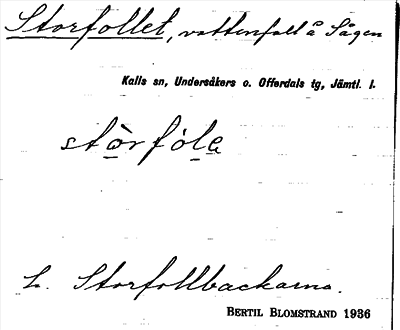 Storfollet, vattenfall å Sågen
Kalls sn, Undersåkers o. Offerdals tg, Jämtl. l.
stòrfòla
L. Storfollbackarna.
BERTIL BLOMSTRAND 1936